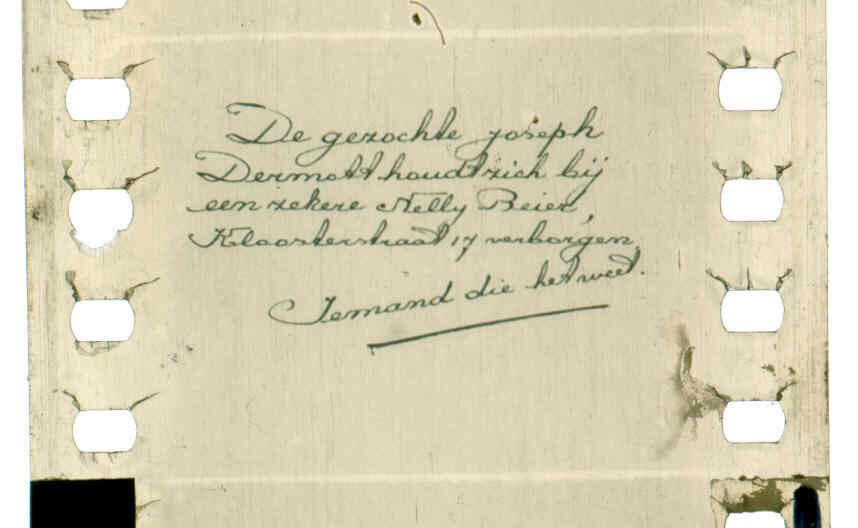 De gezochte joseph
Dermott houdt zich bij
een zekere Nelly Beier,
Kloosterstraat 17 verborgen.
Iemand die het weet.